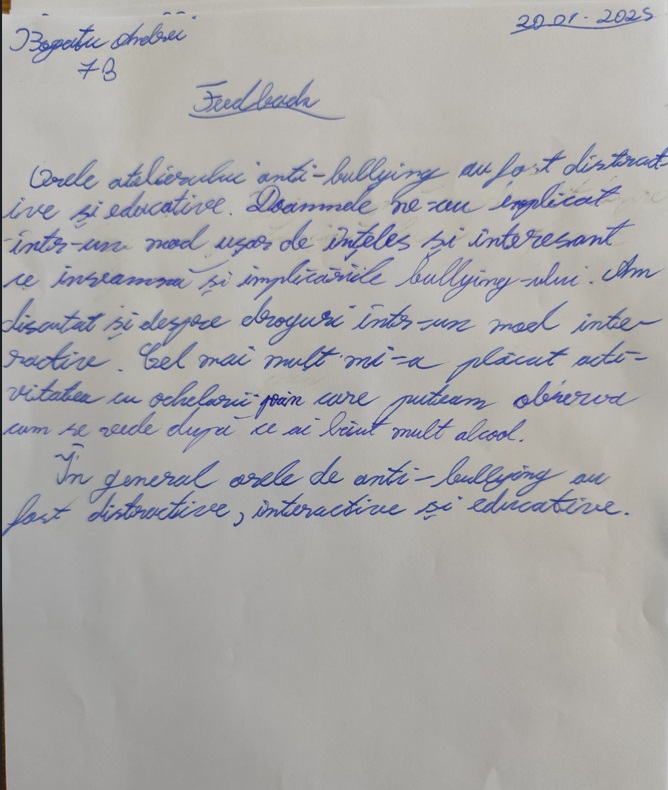 Bogatu Andrei
20.01.2025
7B
Feedback
Orele atelierului anti-bullying au fost distract-
ive și educative. Doamnele ne-au implicat
într-un mod ușor de înțeles și interesant
ce înseamnă și implicările bullying-ului. Am
discutat și despre droguri într-un mod inte-
ractive. Cel mai mult mi-a plăcut acti-
vitatea cu ochelarii prin care puteam observa
cum se vede după ce ai băut mult alcool.
În general orele de anti-bullying au
fost distractive, interactive și educative.